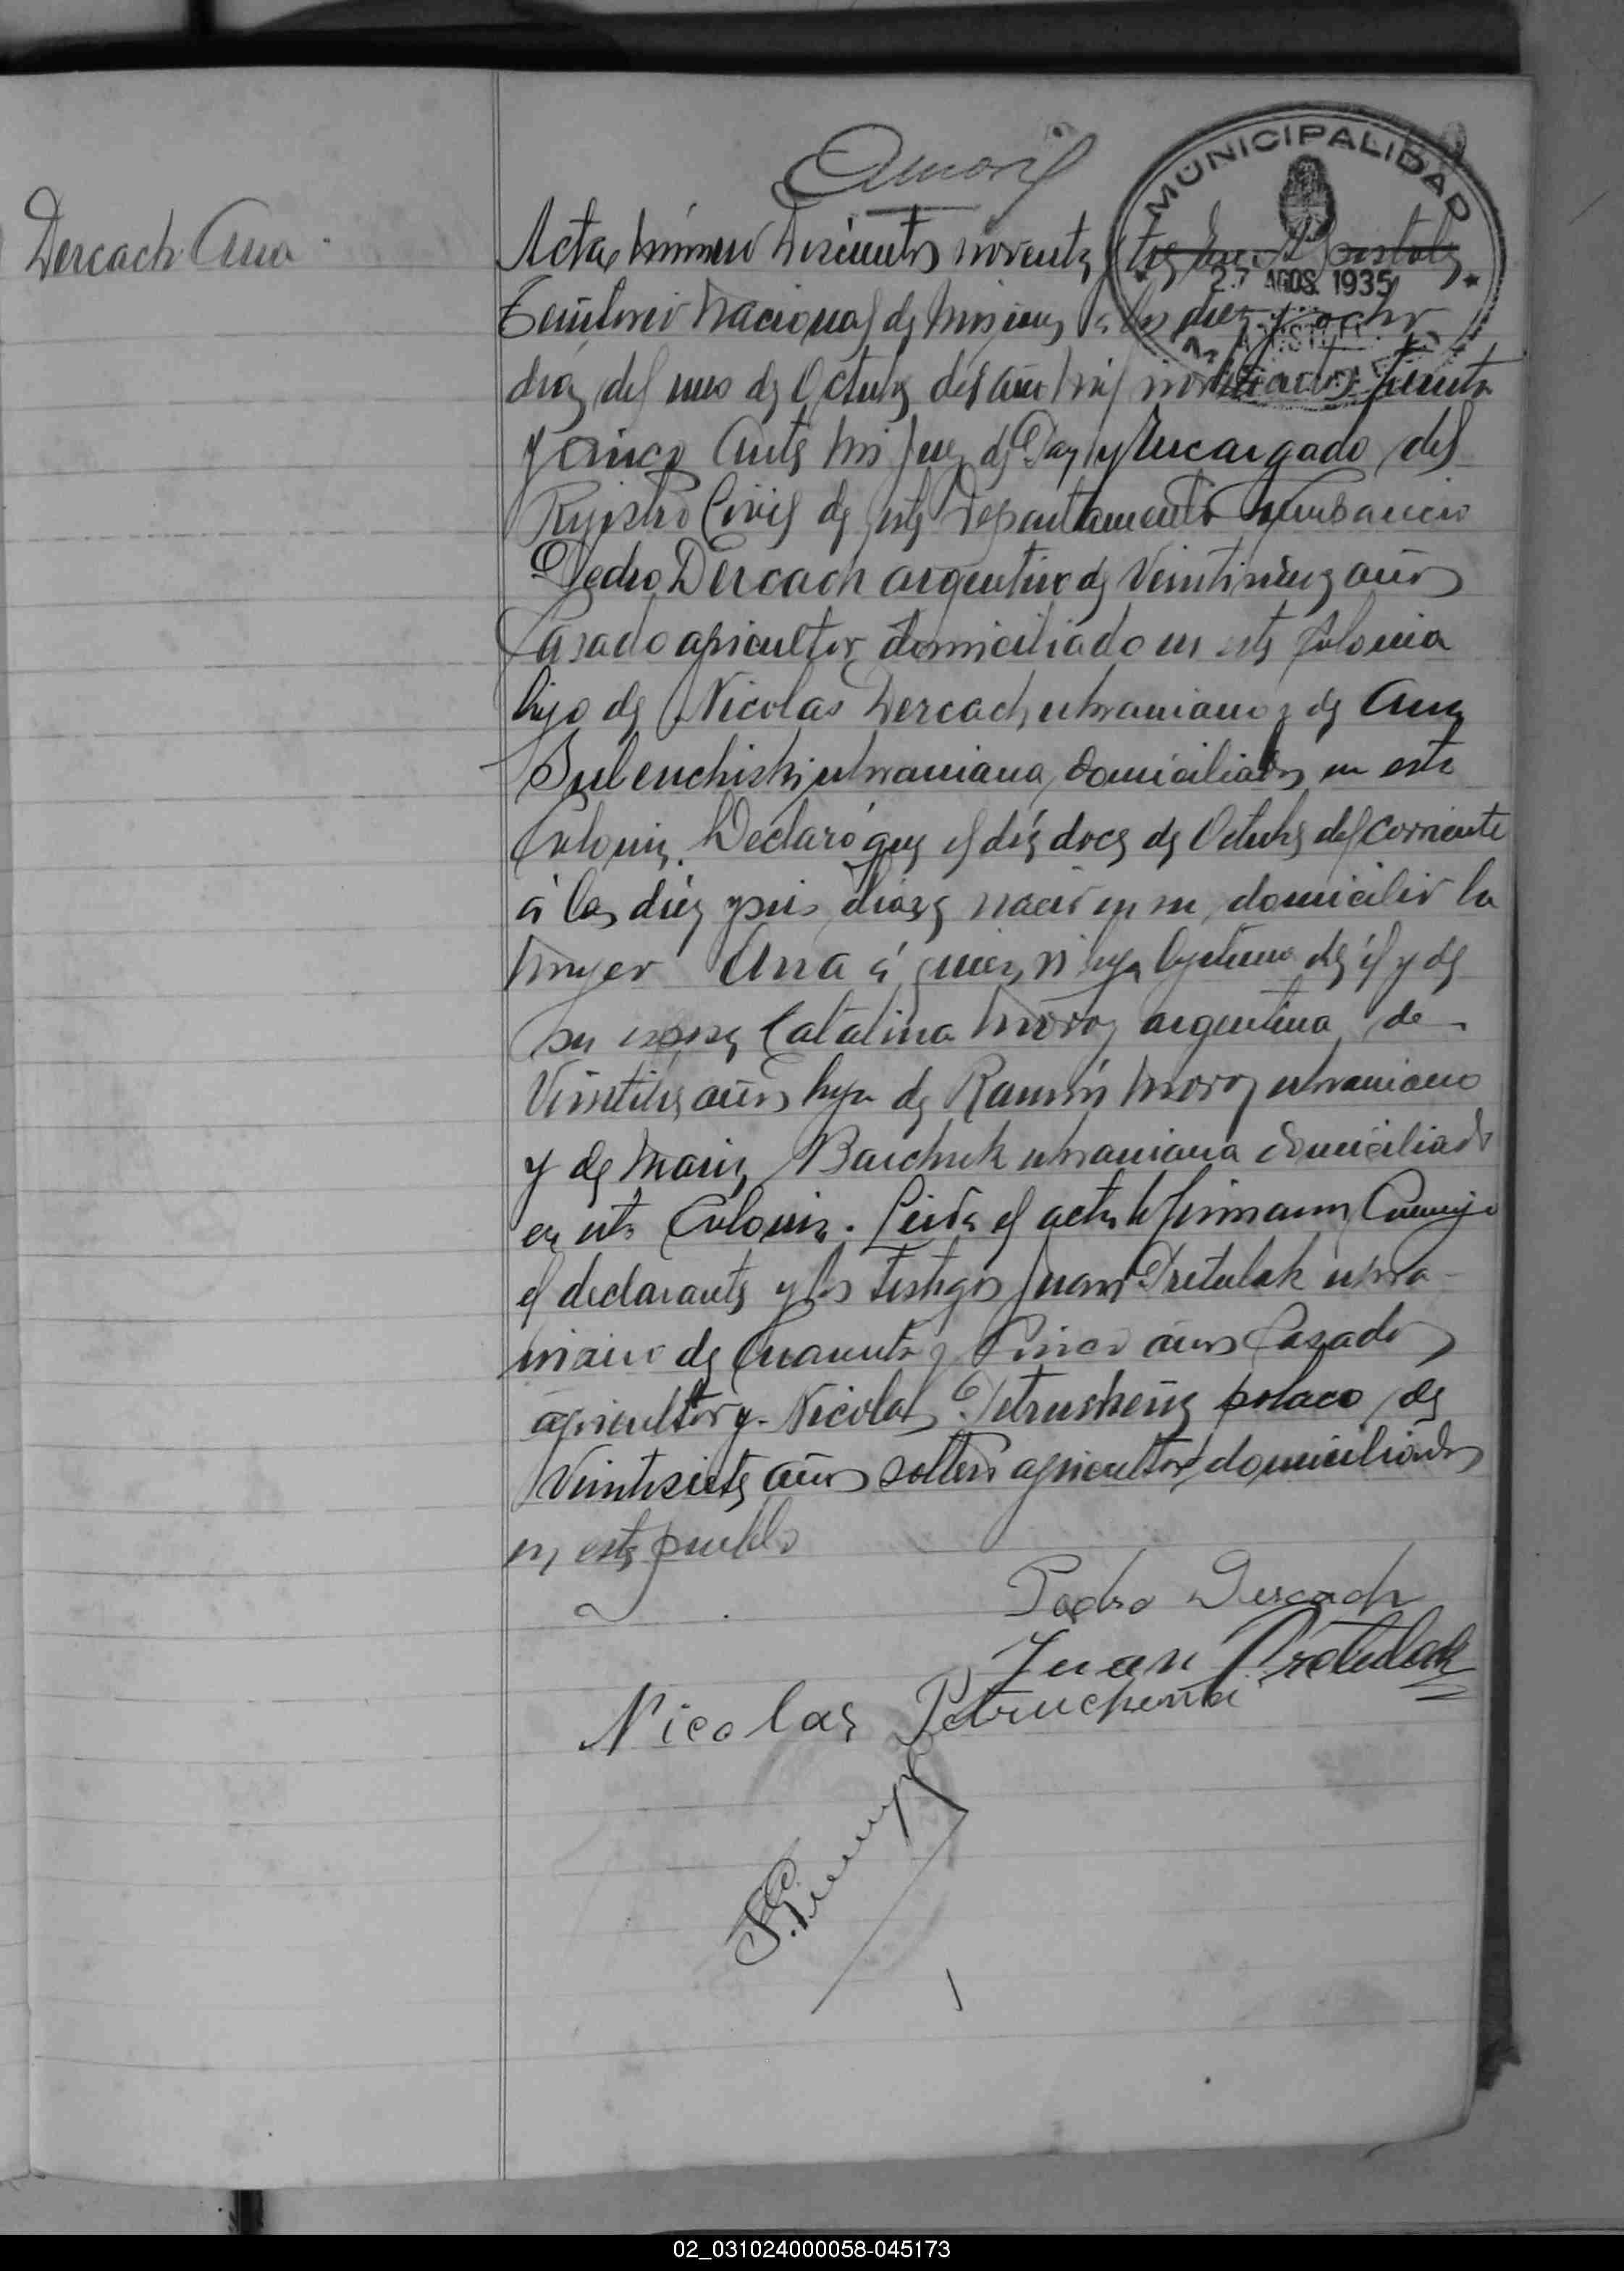 Dercach Ana
MUNICIPALIDAD
27 AGOS. 1935
Acta número Doscientos noventa y tres En Apostoles
Territorio Nacional de Misiones a los diez y ocho
dias del mes de Octubre del año mil novecientos treinta
y cinco Ante mi Juez de Paz y Encargado del
Registro Civil de este Departamento
Pedro Dercach argentino de Veintinueve años
Casado agricultor domiciliado en esta Colonia
hijo de Nicolas Dercach ukraniano y de Ana
ukraniana, domiciliados en esta
Colonia. Declaró que el dia doce de Octubre del corriente
á las diez y seis horas nació en su domicilio la
mujer Ana á quien vi hija legitima de él y de
su esposa Catalina Moroz argentina de
años hija de Ramón Moroz ukraniano
y de Maria Baichuk ukraniana domiciliados
en esta Colonia. Leida el acta la firmaron Conmigo
el declarante y los testigos Juan Pretulak ukra-
niano de Cuarenta y Cinco años Casado
agricultor y Nicolas polaco de
Veintisiete años soltero agricultor, domiciliados
en este pueblo
Pedro Dercach
Juan Pretulak
Nicolas
02_031024000058-045173